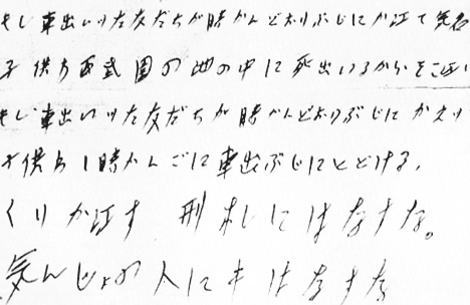 もし車出いった友だちが時かんどおりぶじにかえって気名
子供わ西武園の池の中に死出いるからそこえい
もし車出いった友だちが時かんどおりぶじにかえり
子供わ1時かんごに車出ぶじにとどける、
くりかえす 刑札にはなすな。
気んじょの人にもはなすな